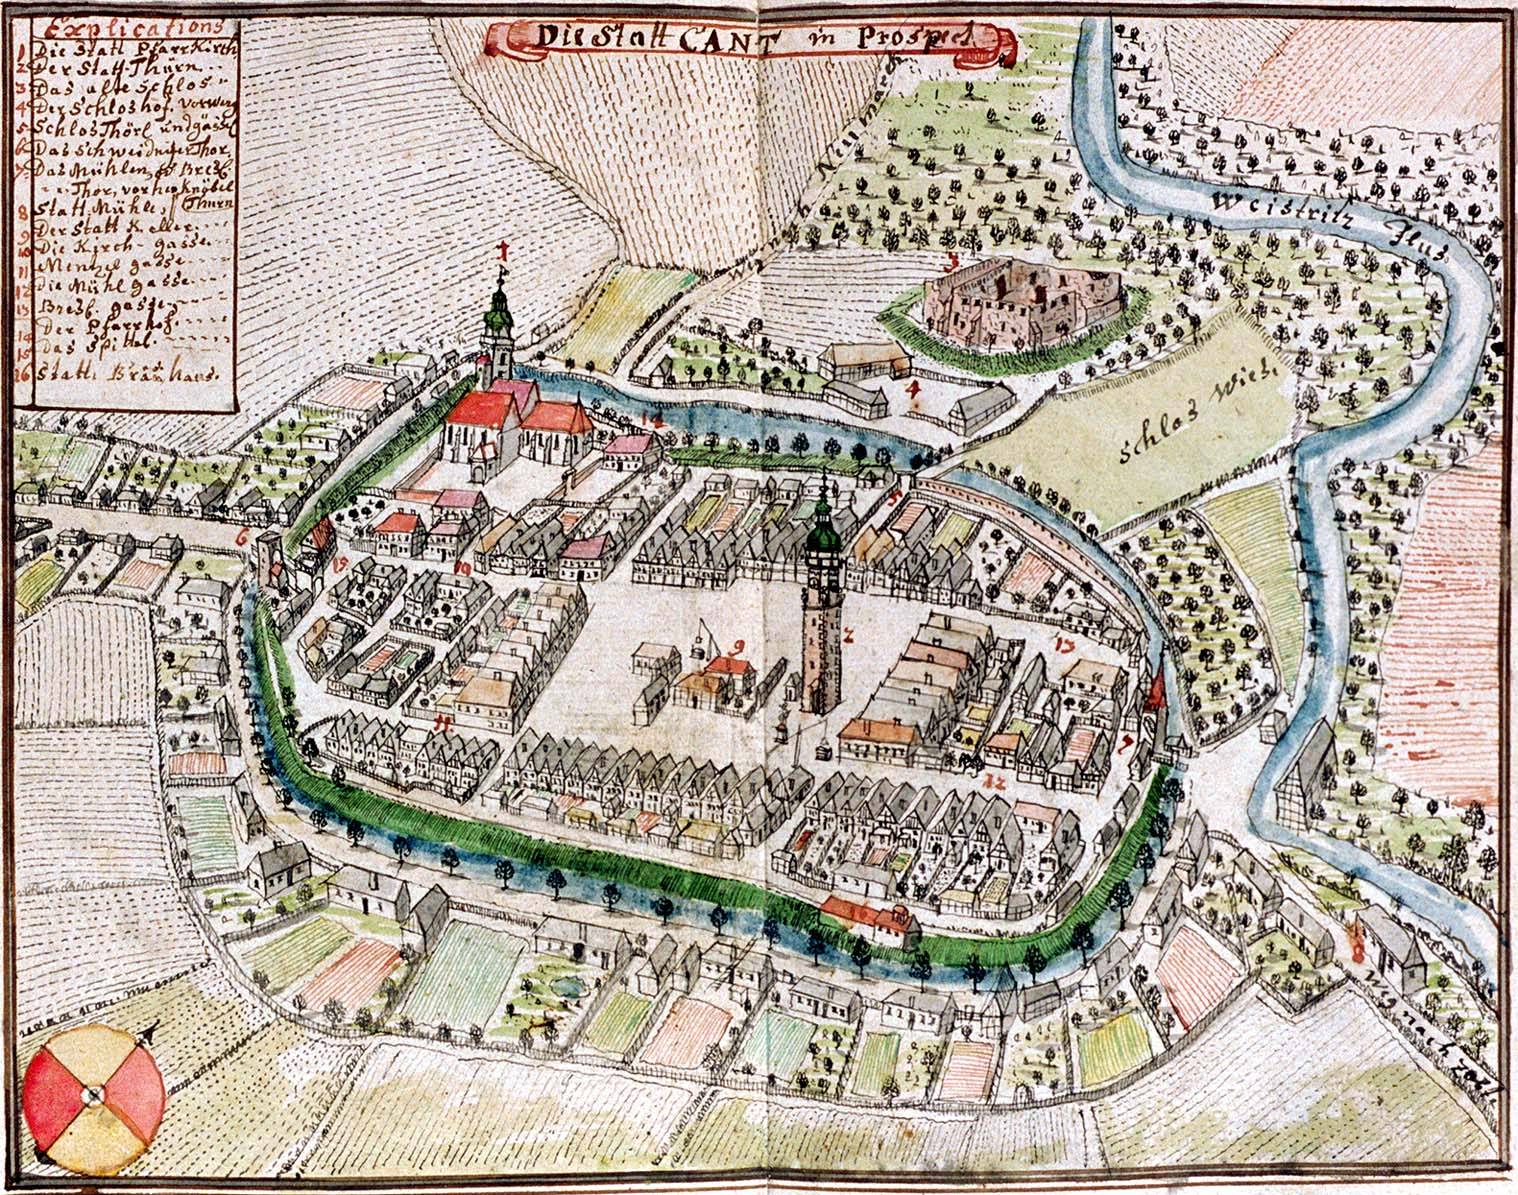 Die Statt CANT in Prospect
Explications
1 Die Statt PfarrKirch
2 Der Statt Thurn
3 Das alte Schlos
4 Der Schloshof, Vorwerg
5 Schlos Thörl und gassel
6 Das Schweidnitzer Thor,
7 Das Mühlen, od Bresl.
Thor, vorher Knöbel
8 Statt Mühle, Thurn
9 Der Statt Keller,
10 Die Kirch gasse
11 Mentzel gasse
12 Die Mühl gasse
13 Bresl. gasse
14 Der Pfarrhof
15 Das Spittal.
16 Statt Bräu haus.
Weg nach Neumarck
Weistritz Flus.
Schlos Wiese
Weg nach
1
3
4
14
5
6
15
10
9
2
13
11
7
12
8